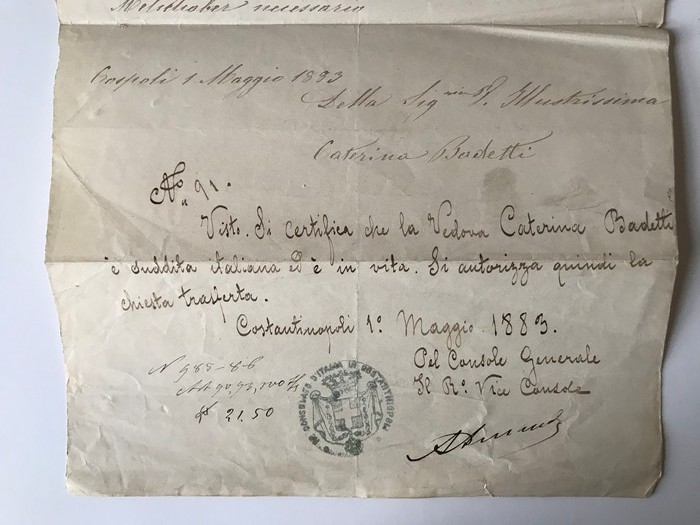 necessario
Cospoli 1 Maggio 1893
Della Sig.ria V. Illustrissima
Caterina Badetti
No. 91.
Visto. Si certifica che la Vedova Caterina Badetti
è suddita italiana ed è in vita. Si autorizza quindi la
chiesta trasferta.
Costantinopoli 1º Maggio 1883.
Pel Console Generale
Il Rº. Vice Console
N 985-86
21.50
CONSOLATO D'ITALIA IN COSTANTINOPOLI